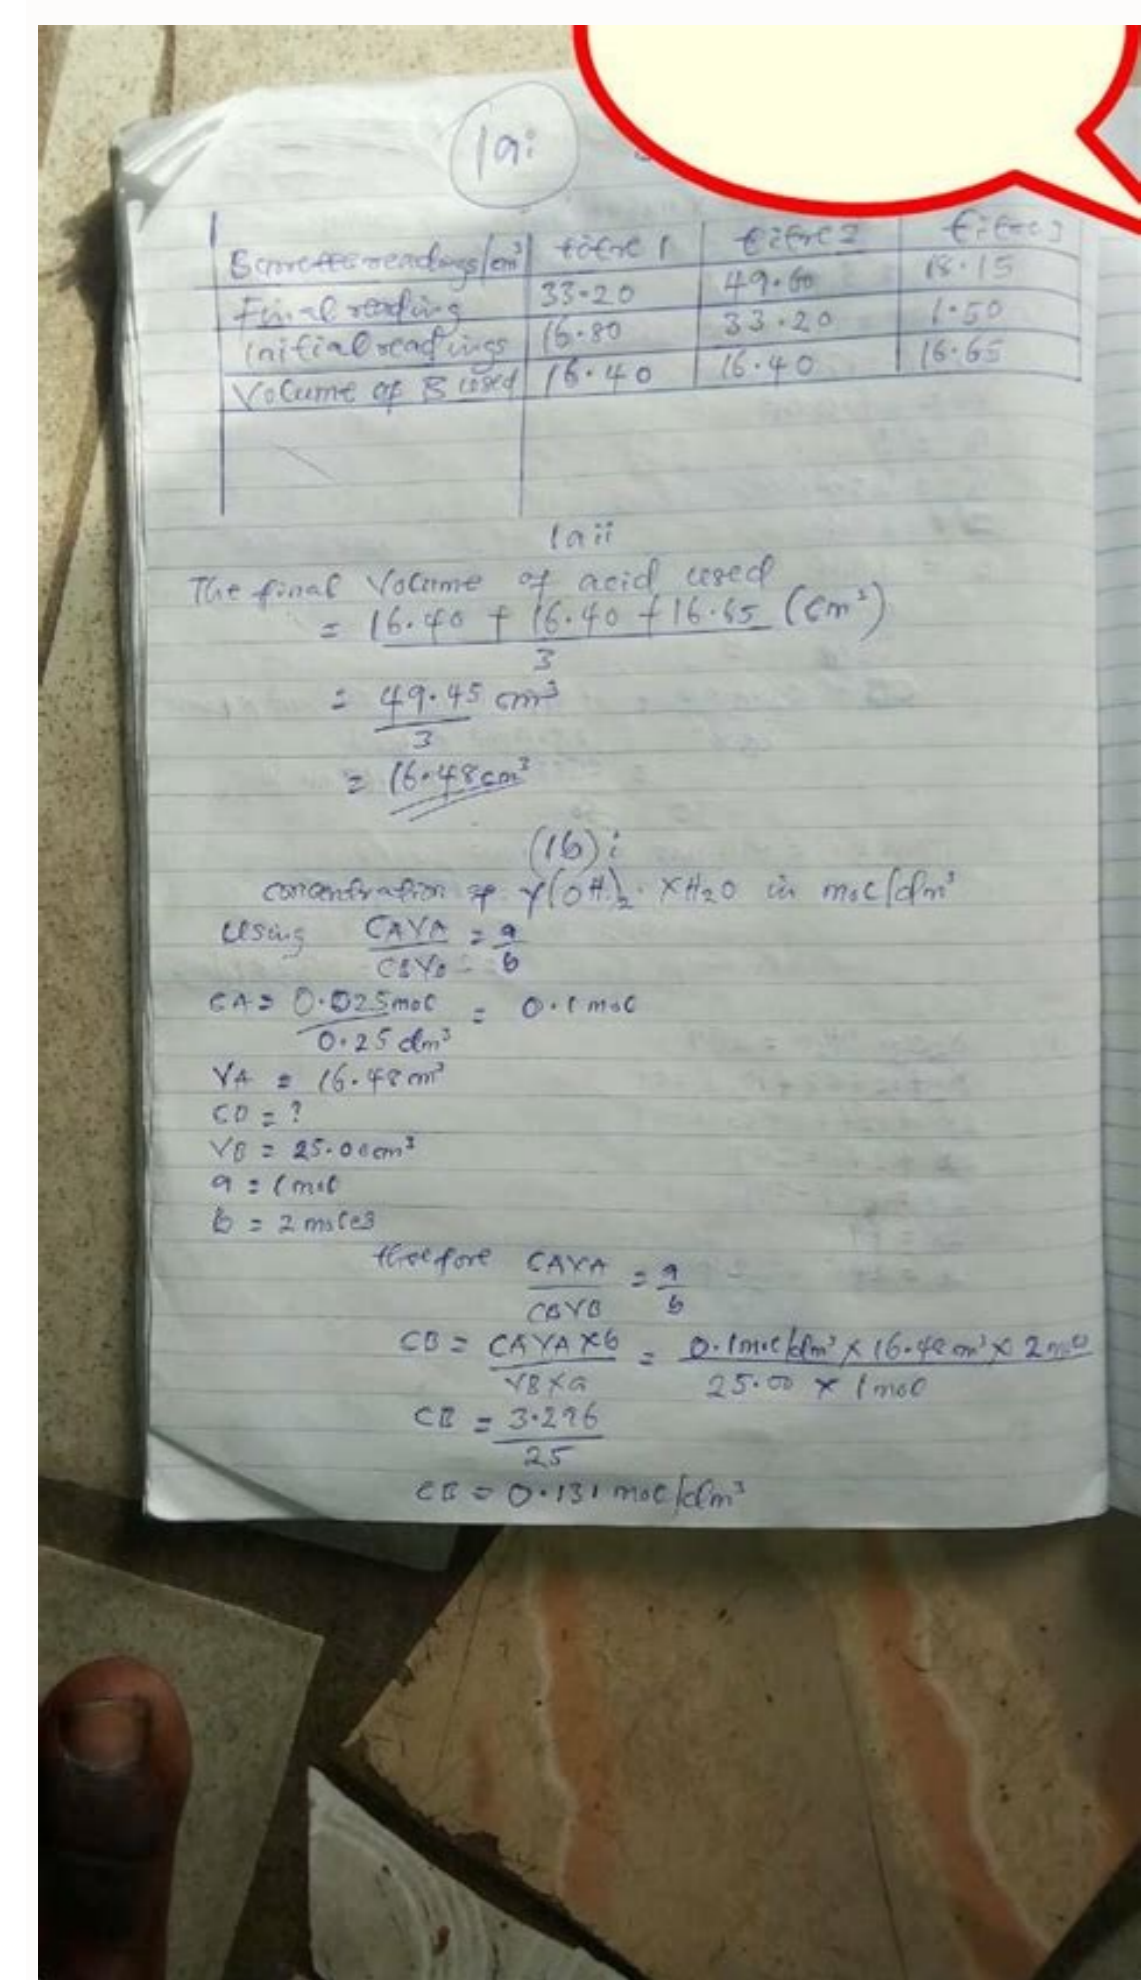 1ai
Burette readings/cm³ titre 1 titre 2 titre 3
Final reading 33.20 49.60 18.15
Initial readings 16.80 33.20 1.50
Volume of B used 16.40 16.40 16.65
1aii
The final Volume of acid used
= 16.40 + 16.40 + 16.65 (cm³)
3
= 49.45 cm³
3
= 16.48cm³
(1b)i
concentration of Y(OH)₂. XH₂O in mol/dm³
Using CAVA = a
CBVB = b
CA = 0.025mol = 0.1mol
0.25 dm³
VA = 16.48cm³
CB = ?
VB = 25.00cm³
a = 1mol
b = 2 moles
therefore CAVA = a
CBVB b
CB = CAVA×b = 0.1mol/dm³ × 16.48cm³ × 2mol
VB×a 25.00 × 1mol
CB = 3.296
25
CB = 0.131 mol/dm³